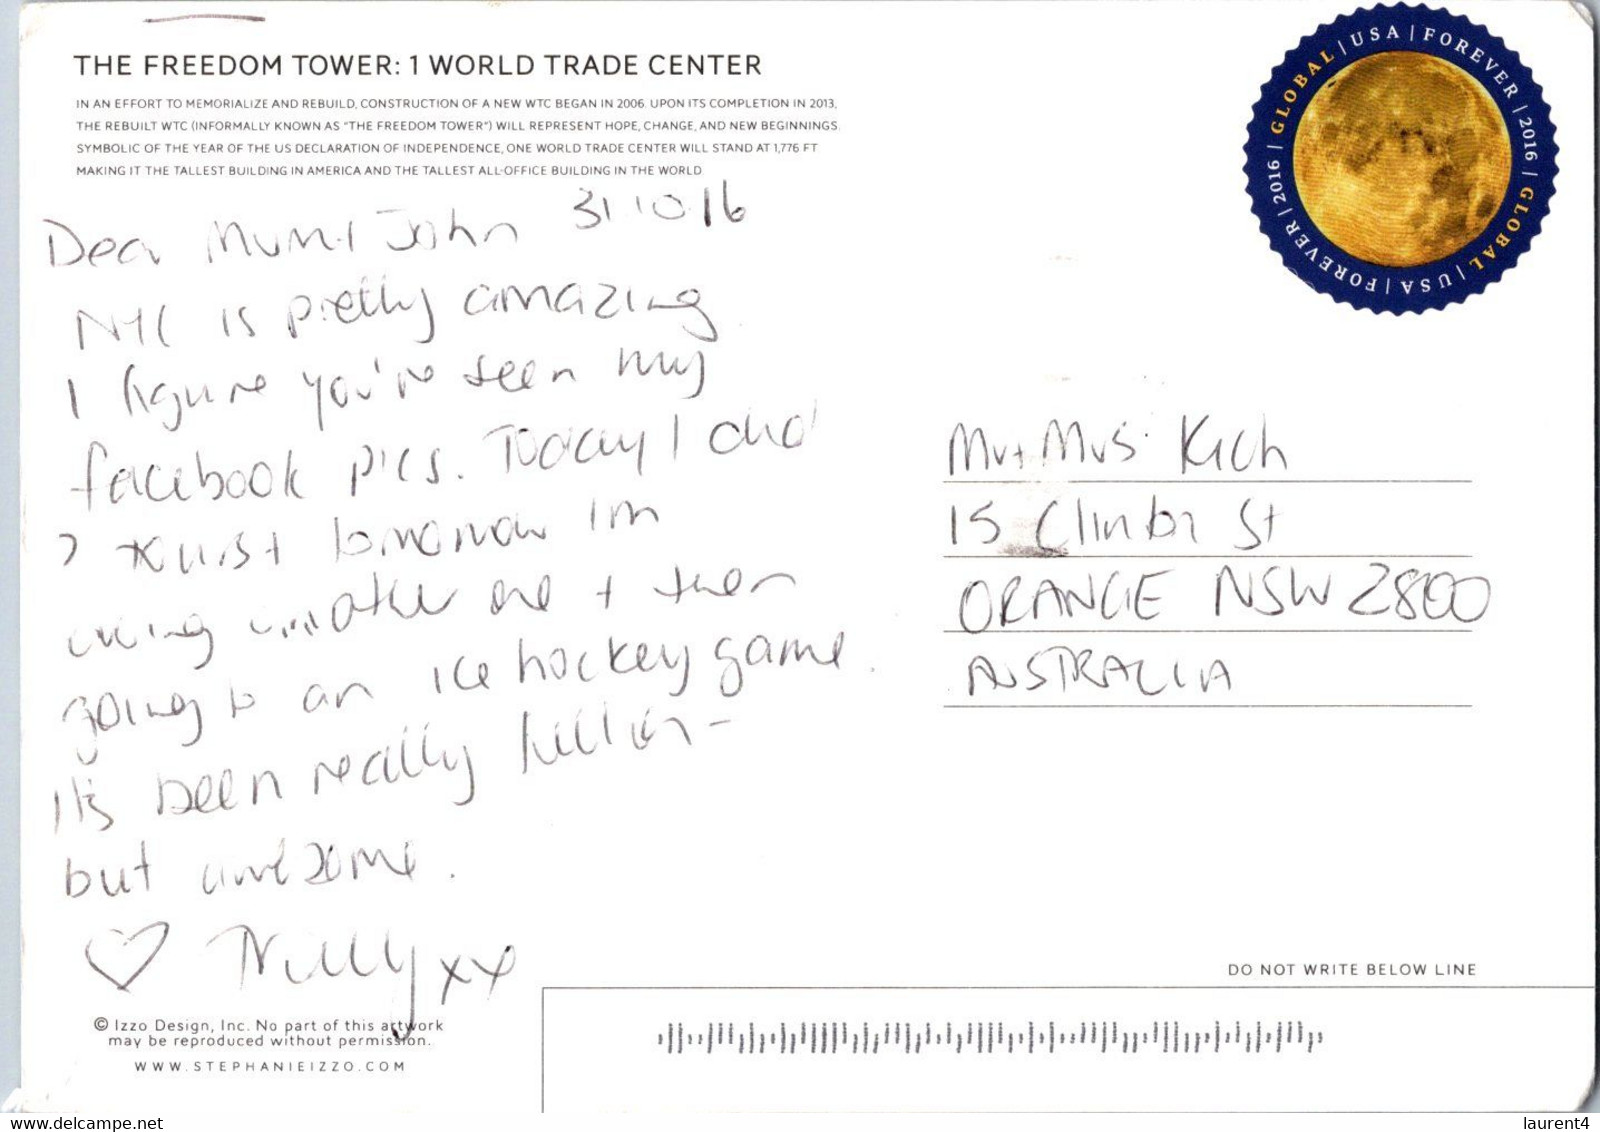 THE FREEDOM TOWER: 1 WORLD TRADE CENTER
IN AN EFFORT TO MEMORIALIZE AND REBUILD, CONSTRUCTION OF A NEW WTC BEGAN IN 2006. UPON ITS COMPLETION IN 2013,
THE REBUILT WTC (INFORMALLY KNOWN AS "THE FREEDOM TOWER") WILL REPRESENT HOPE, CHANGE, AND NEW BEGINNINGS.
SYMBOLIC OF THE YEAR OF THE US DECLARATION OF INDEPENDENCE, ONE WORLD TRADE CENTER WILL STAND AT 1,776 FT
MAKING IT THE TALLEST BUILDING IN AMERICA AND THE TALLEST ALL-OFFICE BUILDING IN THE WORLD
GLOBAL | USA | FOREVER | 2016 | GLOBAL | USA | FOREVER | 2016 |
31 10 16
Dear Mum + John
NYC is pretty amazing
I figure you've seen my
facebook pics. Today I did
tourist tomorrow im
doing another one + then
going to an ice hockey game.
It's been really
but awesome.
xx
Mr + Mrs
15 St
ORANGE NSW 2800
AUSTRALIA
DO NOT WRITE BELOW LINE
© Izzo Design, Inc. No part of this artwork
may be reproduced without permission.
WWW.STEPHANIEIZZO.COM
https://www.delcampe.net
laurent4